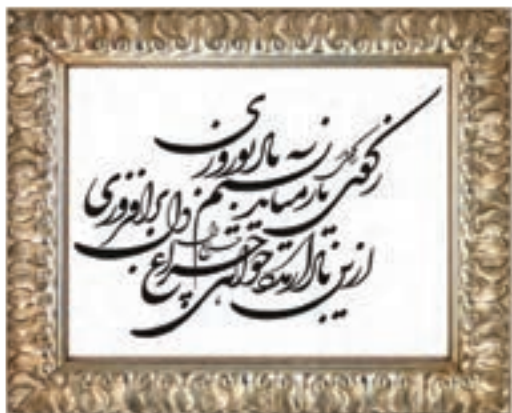 ز کوی یار میاید نسیم باد نوروزی
از این باد ار مدد خواهی چراغ دل برافروزی